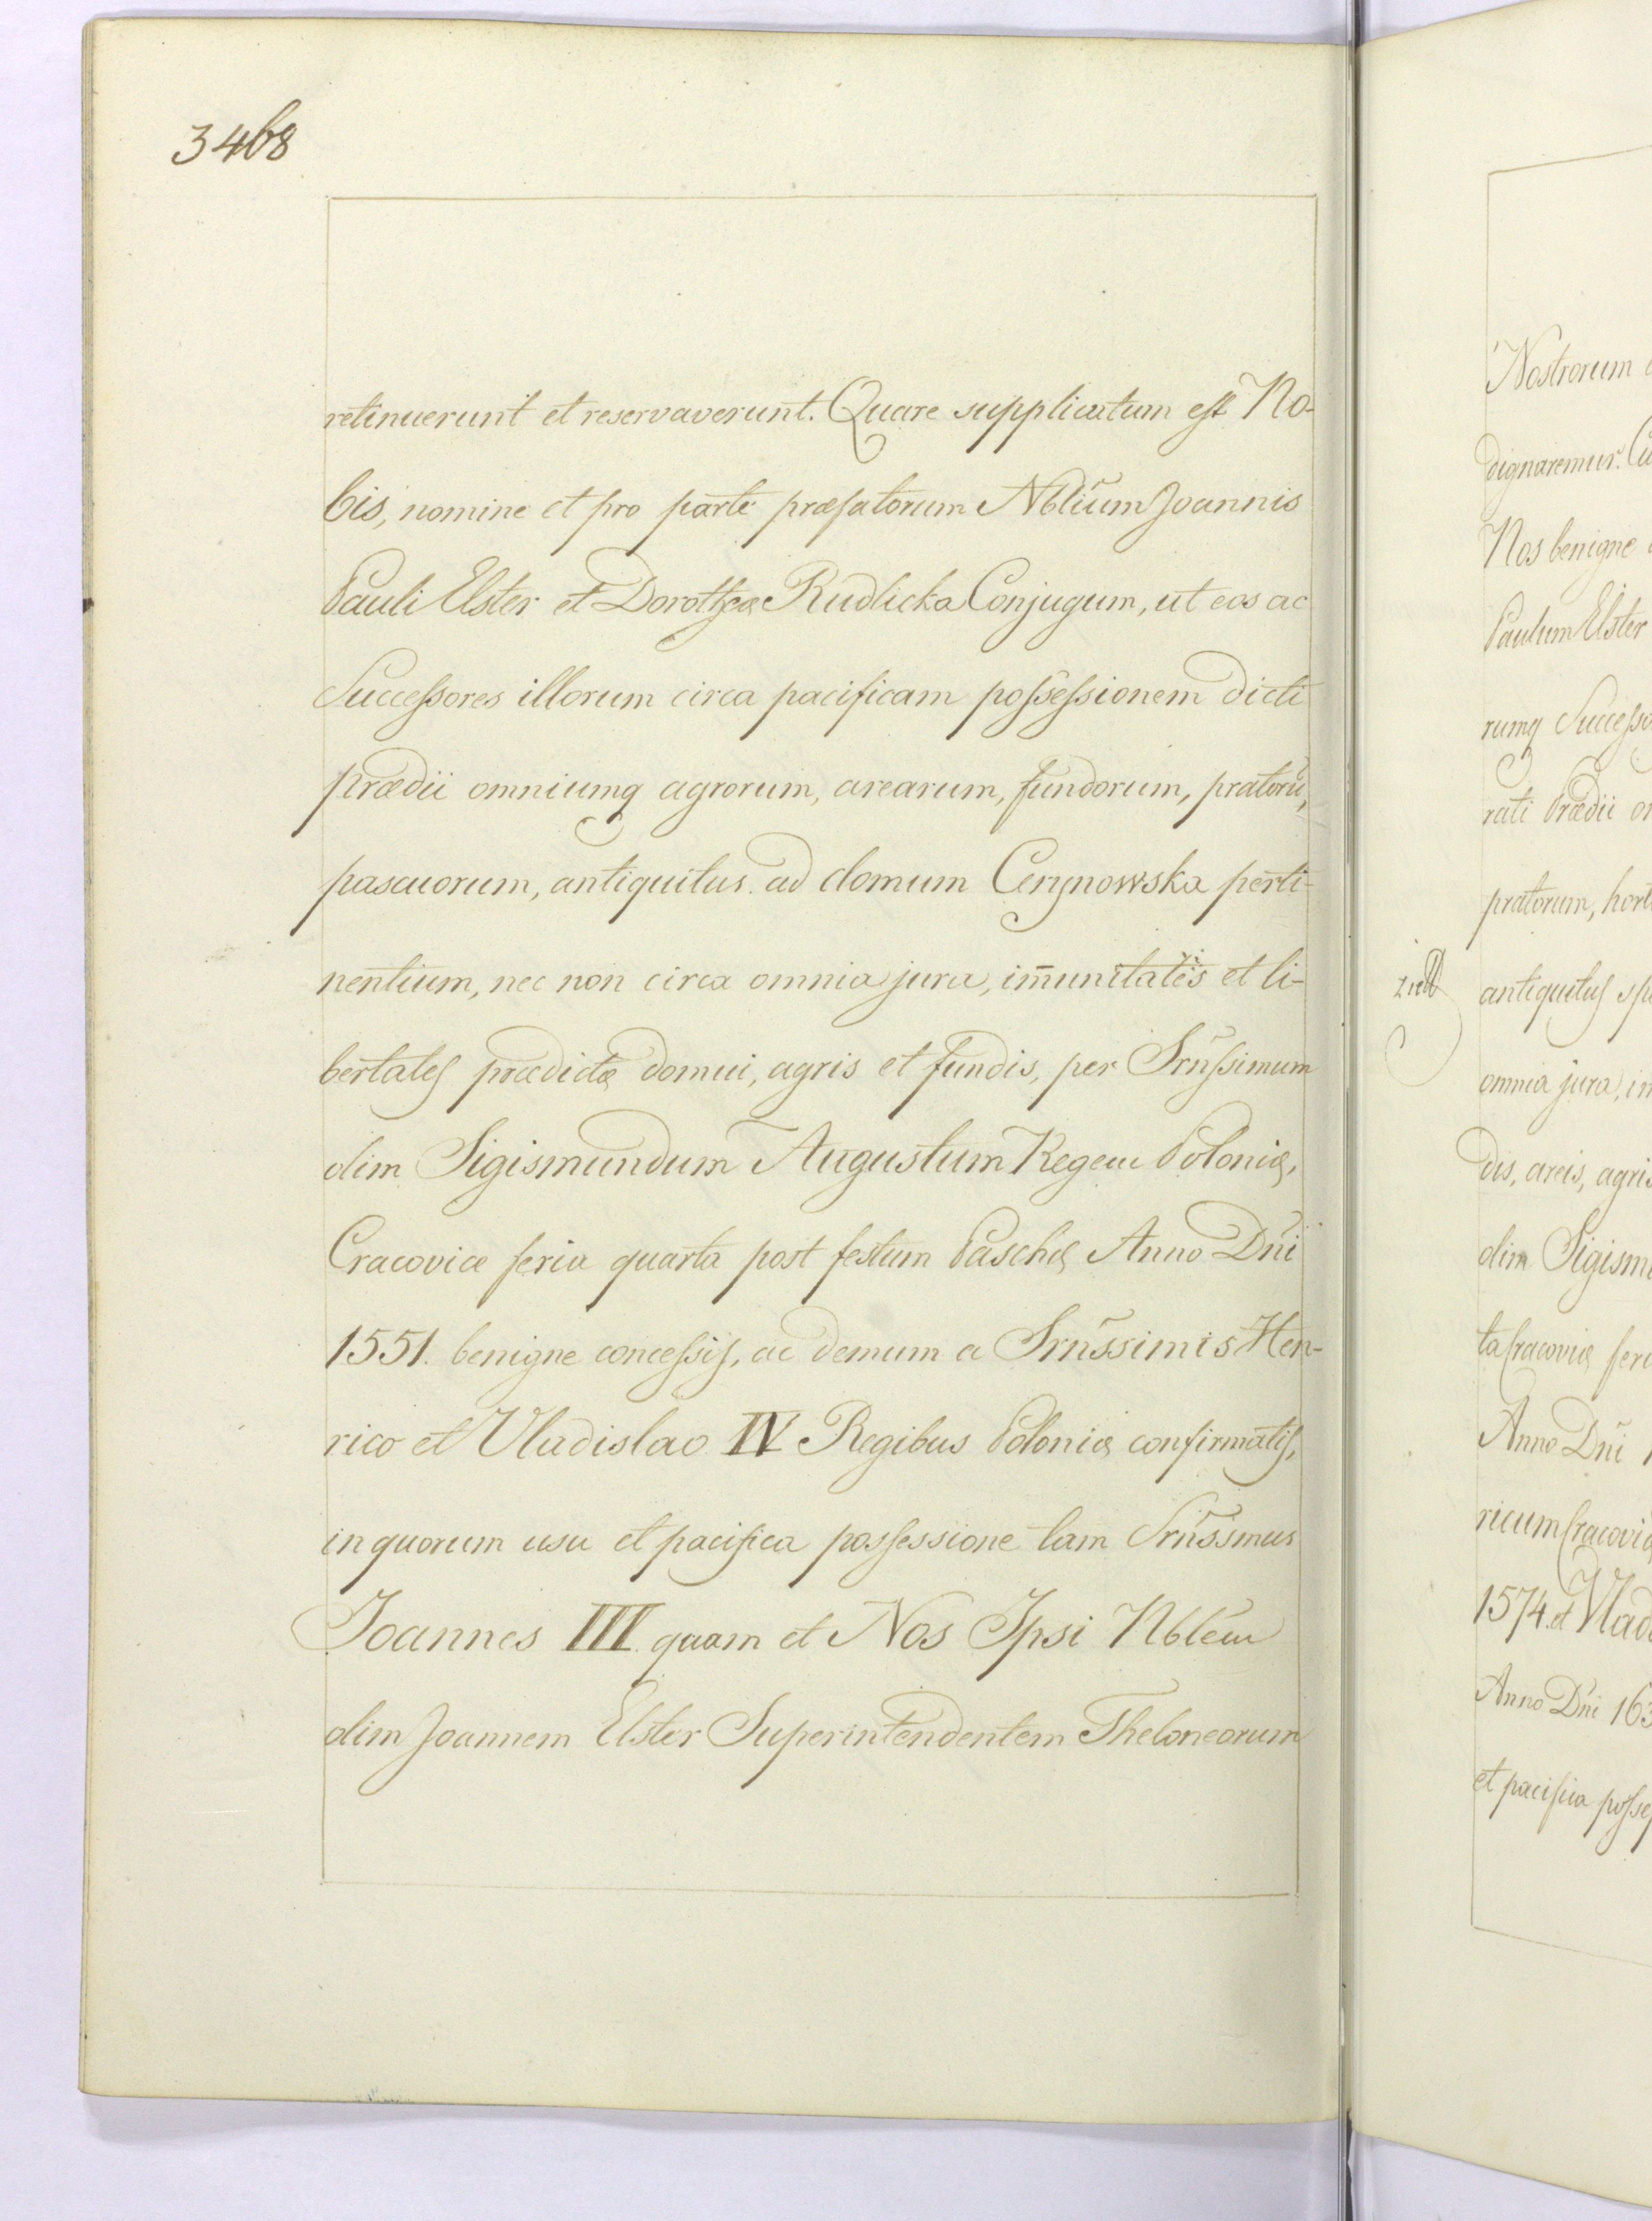 3468
retinuerunt et reservaverunt. Quare supplicatum est No-
bis, nomine et pro parte præfatorum Nbliũm Joannis
Pauli Elster et Dorotheæ Rudlicka Conjugum, ut eos ac
Successores illorum circa pacificam possessionem dicti
prædii omniumq agrorum, arearum, fundorum, pratorũ,
pascuorum, antiquitus ad domum Cerynowska perti-
nentium, nec non circa omnia jura, im̄unitates et li-
bertates prædictæ domui, agris et fundis, per Srn̄ssimum
olim Sigismundum Augustum Regem Poloniæ,
Cracoviæ feria quarta post festum Paschæ Anno Dn̄i
1551. benigne concessis, ac demum a Srn̄ssimis Hen-
rico et Vladislao IV Regibus Poloniæ confirmatis,
in quorum usu et pacifica possessione tam Srn̄ssmus
Joannes III. quam et Nos Ipsi Nblēm
olim Joannem Elster Superintendentem Thelonearum
Nostrorum
dignaremur.
Nos benigne
Paulum Elster
rumq Successo
rati Prædii
pratorum, hort
antiquitus
omnia jura,
dis, areis, agris
olim Sigism
ta Cracoviæ feri
Anno Dn̄i
ricum Cracoviæ
1574. et Vlad
Anno Dn̄i 163
et pacifica posses